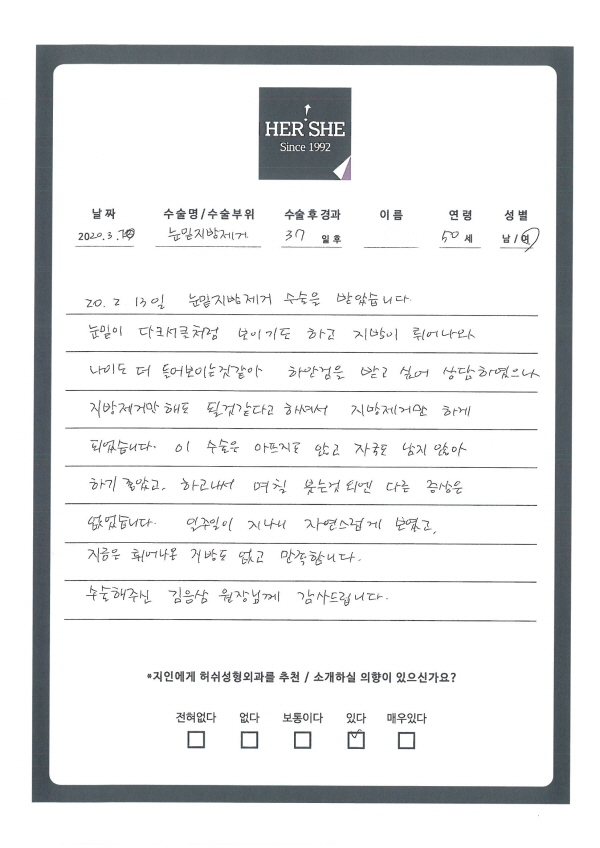 HER SHE
Since 1992
날짜 수술명/수술부위 수술 후 경과 이름 연령 성별
2020.3. 눈밑지방제거 37 일 후 50 세 남/여
20. 2 13일 눈밑지방제거 수술을 받았습니다.
눈밑이 다크서클처럼 보이기도 하고 지방이 튀어나와
나이도 더 들어보이는것같아 하안검을 받고 싶어 상담하였으나
지방제거만 해도 될것같다고 하셔서 지방제거만 하게
되었습니다. 이 수술은 아프지도 않고 자국도 남지 않아
하기 좋았고, 하고나서 며칠 붓는것 외엔 다른 증상은
없었습니다. 일주일이 지나니 자연스럽게 보였고,
지금은 튀어나온 지방도 없고 만족합니다.
수술해주신 김응삼 원장님께 감사드립니다.
*지인에게 허쉬성형외과를 추천 / 소개하실 의향이 있으신가요?
전혀없다 없다 보통이다 있다 매우있다